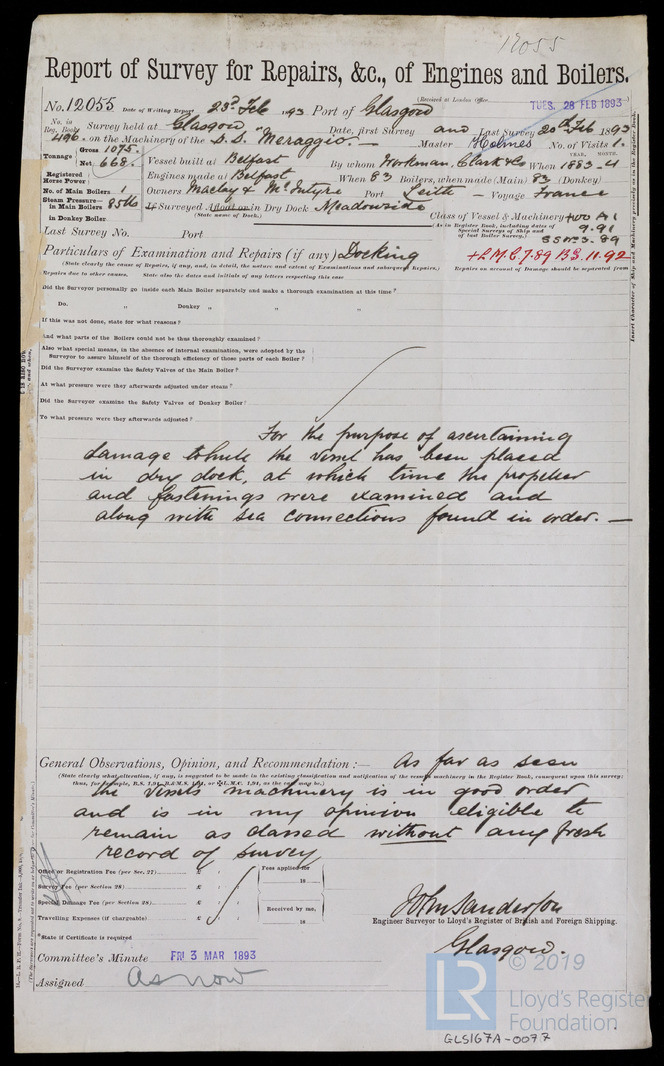 12055
Report of Survey for Repairs, &c., of Engines and Boilers.
(Received at London Office
No. 12055 Date of Writing Report 23rd Feb 1893 Port of Glasgow TUES. 28 FEB 1893
No. in Reg. Book 496. Survey held at Glasgow Date, first Survey and Last Survey 20th Feb 1893
on the Machinery of the S.S. "Meraggio. Master Holmes No. of Visits 1.
Tonnage Gross 1075. Net 668.
Vessel built at Belfast By whom Workman, Clark & Co When 1883-4
YEAR. MONTH.
Registered Horse Power
Engines made at Belfast When 83 Boilers, when made (Main) 83 (Donkey)
No. of Main Boilers 1
Owners Maclay & McIntyre Port Leith Voyage France
Steam Pressure in Main Boilers 85lb
in Donkey Boiler
If Surveyed Afloat or in Dry Dock Meadowside
(State name of Dock.)
Class of Vessel & Machinery +100 A1
(As in Register Book, including dates of Special Surveys of Ship and of last Boiler Survey.)
9.91
SSNo3.89
Last Survey No. Port
+L.M.C.7.89 B.S.11.92
Particulars of Examination and Repairs (if any) Docking
(State clearly the cause of Repairs, if any, and, in detail, the nature and extent of Examinations and subsequent Repairs.) Repairs on account of Damage should be separated from
Repairs due to other causes. State also the dates and initials of any letters respecting this case
Did the Surveyor personally go inside each Main Boiler separately and make a thorough examination at this time?
Do. „ Donkey „ „ „
If this was not done, state for what reasons?
And what parts of the Boilers could not be thus thoroughly examined?
Also what special means, in the absence of internal examination, were adopted by the
Surveyor to assure himself of the thorough efficiency of those parts of each Boiler?
Did the Surveyor examine the Safety Valves of the Main Boiler?
At what pressure were they afterwards adjusted under steam?
Did the Surveyor examine the Safety Valves of Donkey Boiler?
To what pressure were they afterwards adjusted?
For the purpose of ascertaining
damage to hull the vessel has been placed
in dry dock, at which time the propeller
and fastenings were examined and
along with sea connections found in order. —
General Observations, Opinion, and Recommendation :— As far as seen
(State clearly what alteration, if any, is suggested to be made in the existing classification and notification of the vessel's machinery in the Register Book, consequent upon this survey;
the vessels machinery is in good order
and is in my opinion eligible to
remain as classed without any fresh
record of survey
Office or Registration Fee (per Sec. 27) £
Survey Fee (per Section 28) £
Special Damage Fee (per Section 28) £
Travelling Expenses (if chargeable) £
Fees applied for
18
Received by me,
18
John Sanderson
Engineer Surveyor to Lloyd's Register of British and Foreign Shipping.
*State if Certificate is required
Glasgow.
Committee's Minute FRI 3 MAR 1893
Assigned as now
LR © 2019
Lloyd's Register
Foundation
GLS167A-0077